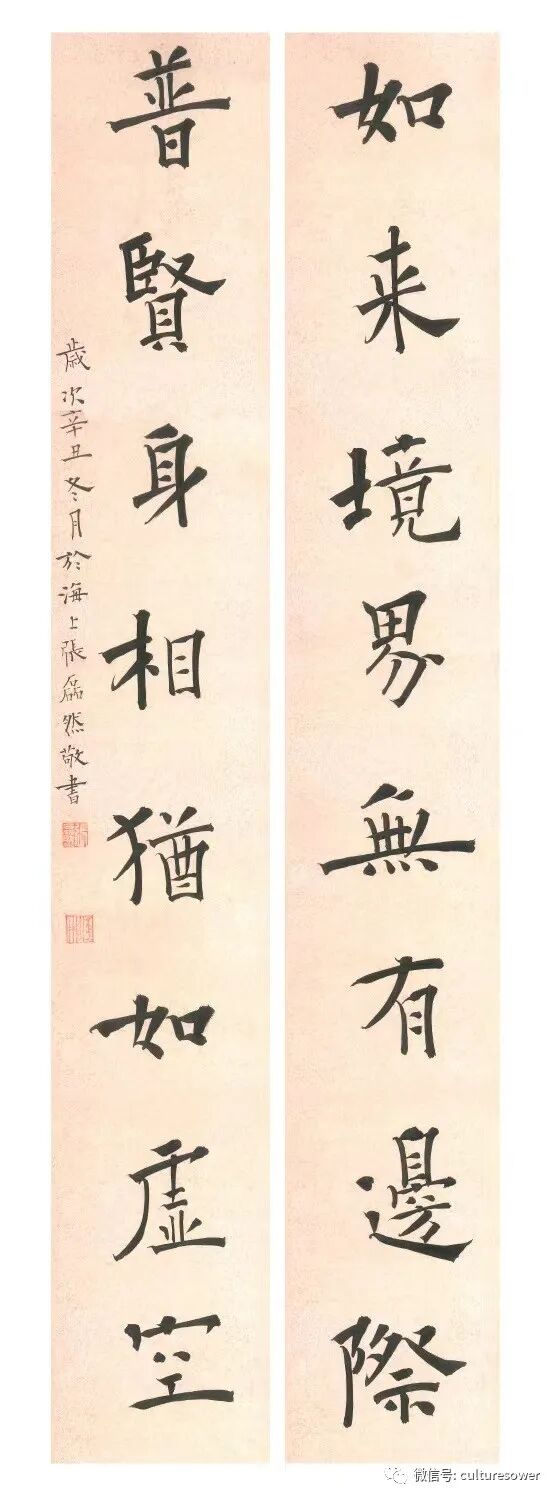 如来境界無有邊際
普賢身相猶如虛空
歲次辛丑冬月於海上張磊然敬書
微信号: culturesower